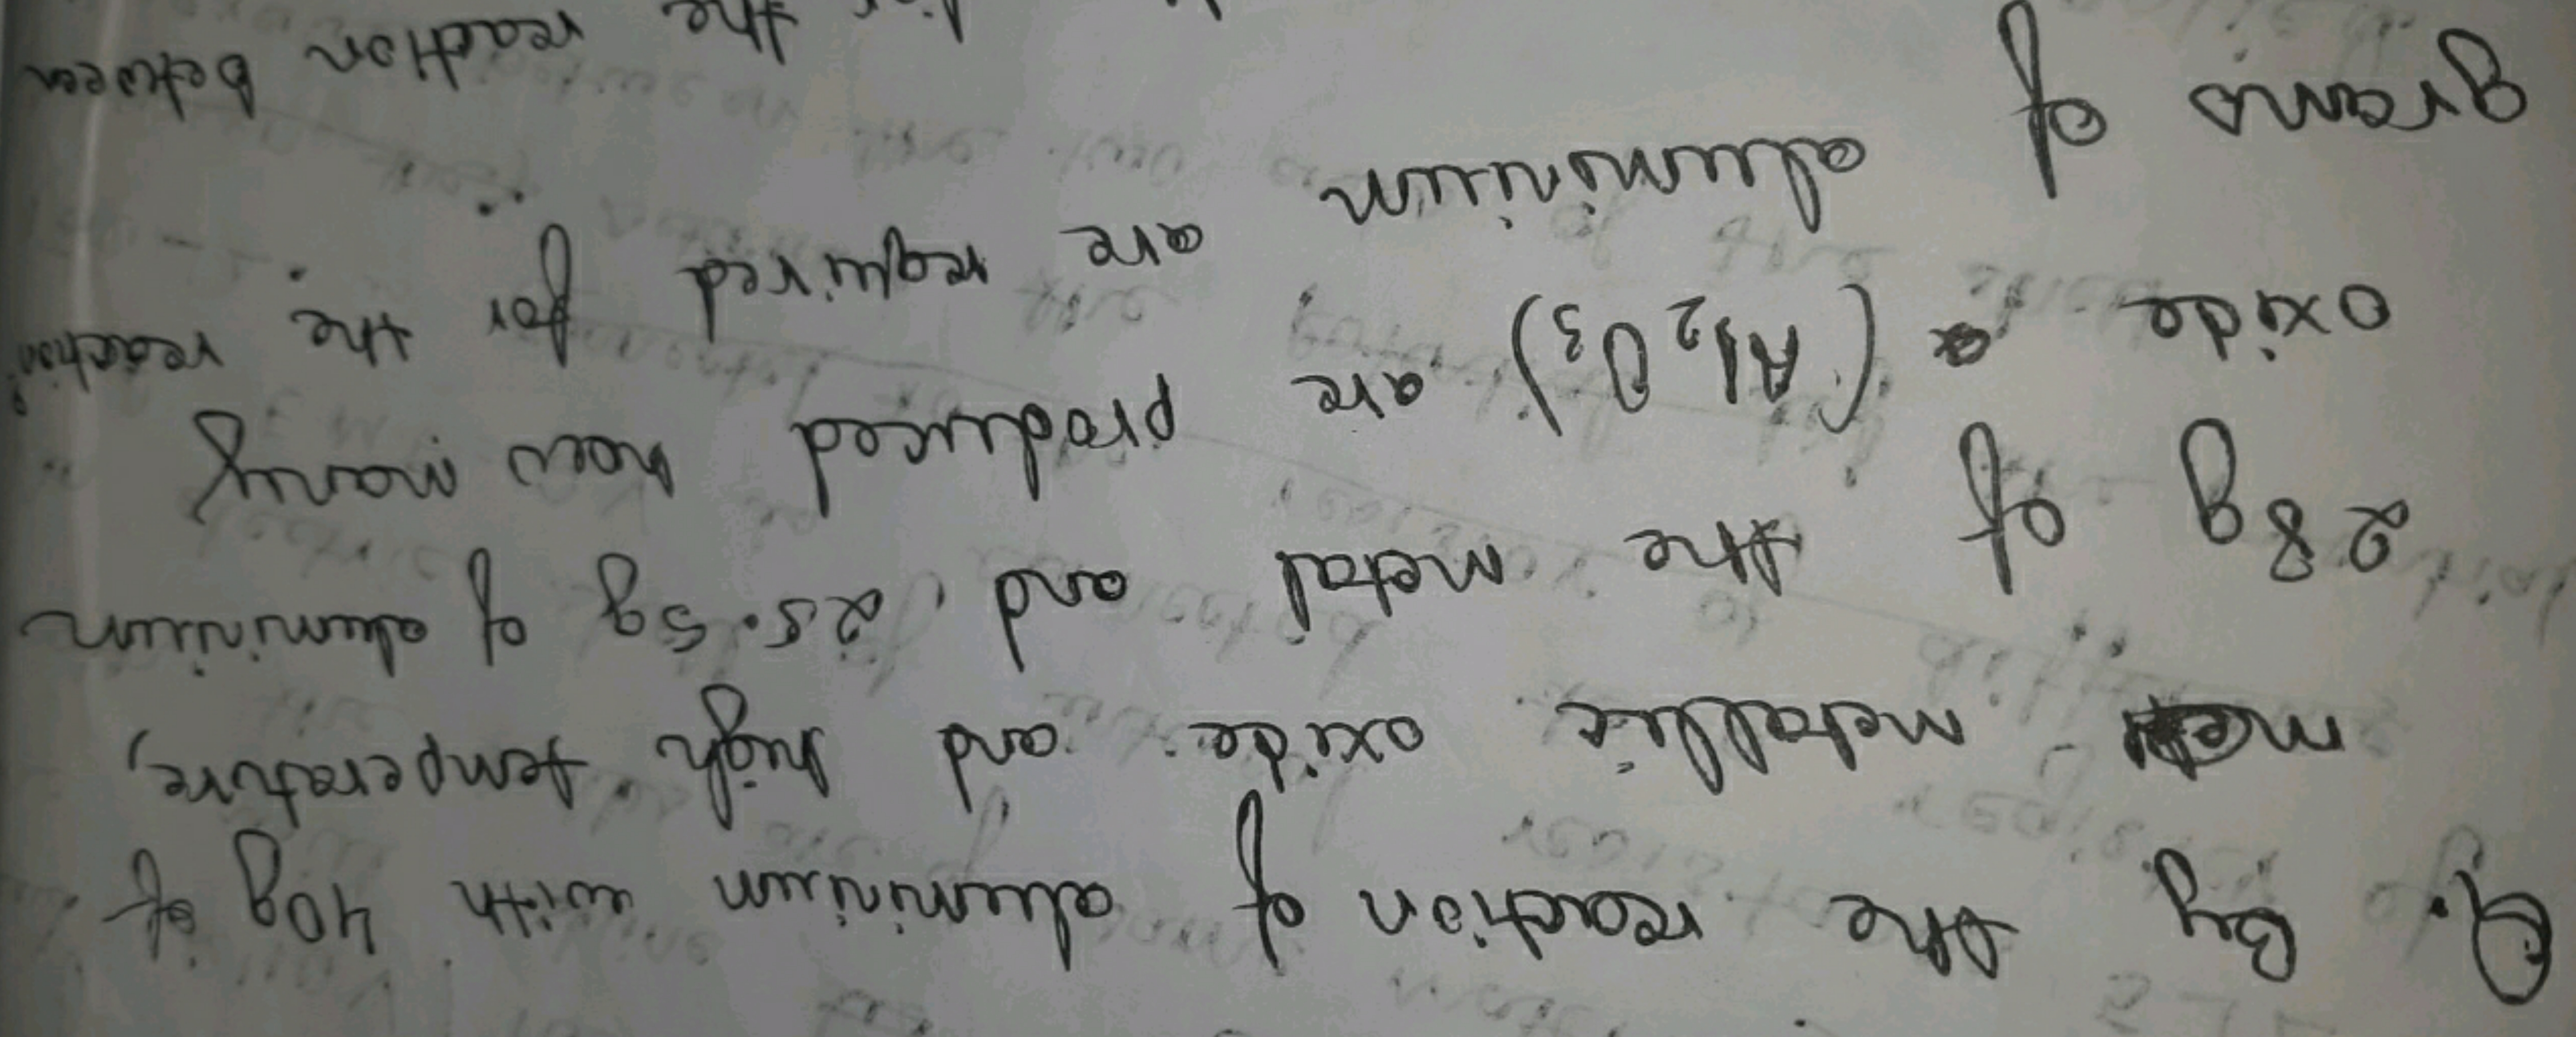 Q. By the reaction of aluminium with 40g of
metallic oxide and high temperature,
28g of the metal and 25.5g of aluminium
oxide (Al2O3) are produced how many
grams of aluminium are required for the reaction?
the reaction between